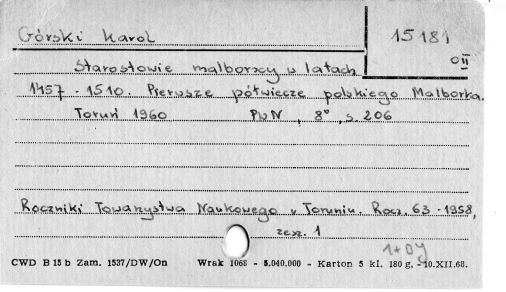 Górski Karol
15181
OII
Starostowie malborscy w latach
1457-1510. Pierwsze półwiecze polskiego Malborka.
Toruń 1960 PWN, 8°, s. 206
Roczniki Towarzystwa Naukowego w Toruniu. Rocz. 63-1958,
zesz. 1
CWD B 15 b Zam. 1537/DW/On Wrak 1068 - 5.040.000 - Karton 5 kl. 180 g, -10.XII.68.